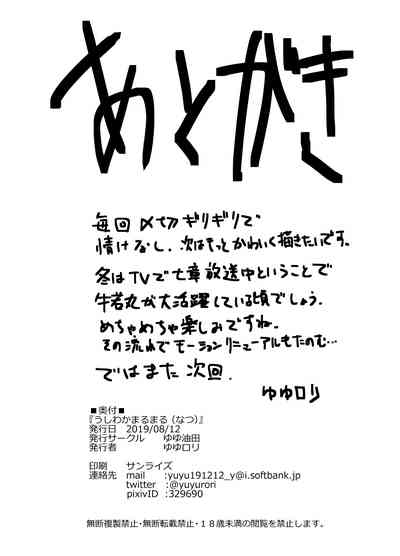 あとがき
毎回〆切ギリギリで
情けなし、次はもっとかわいく描きたいです。
冬はTVで七章放送中ということで
牛若丸が大活躍している頃でしょう。
めちゃめちゃ楽しみですね。
その流れでモーションリニューアルもたのむ…
ではまた次回.
ゆゆロリ
■奥付■
『うしわかまるまる（なつ）』
発行日 2019/08/12
発行サークル ゆゆ油田
発行者 ゆゆロリ
印刷 サンライズ
連絡先 mail :yuyu191212_y@i.softbank.jp
twitter :@yuyurori
pixivID :329690
無断複製禁止・無断転載禁止・１８歳未満の閲覧を禁止します。